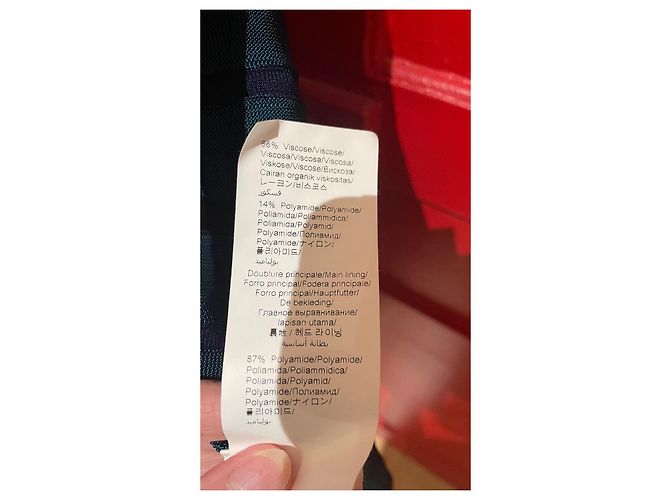 86% Viscose/Viscose/
Viscosa/Viscosa/Viscosa/
Viskose/Viscose/Вискоза/
Cairan organik viskositas/
レーヨン/비스코스
فسكوز
14% Polyamide/Polyamide/
Poliamida/Poliammidica/
Poliamida/Polyamid/
Polyamide/Полиамид/
Polyamide/ナイロン/
폴리아미드/
بوليامید
Doublure principale/Main lining/
Forro principal/Fodera principale/
Forro principal/Hauptfutter/
De bekleding/
Главное выравнивание/
lapisan utama/
裏地 / 헤드 라이닝
بطانة أساسية
87% Polyamide/Polyamide/
Poliamida/Poliammidica/
Poliamida/Polyamid/
Polyamide/Полиамид/
Polyamide/ナイロン/
폴리아미드/
بوليامید